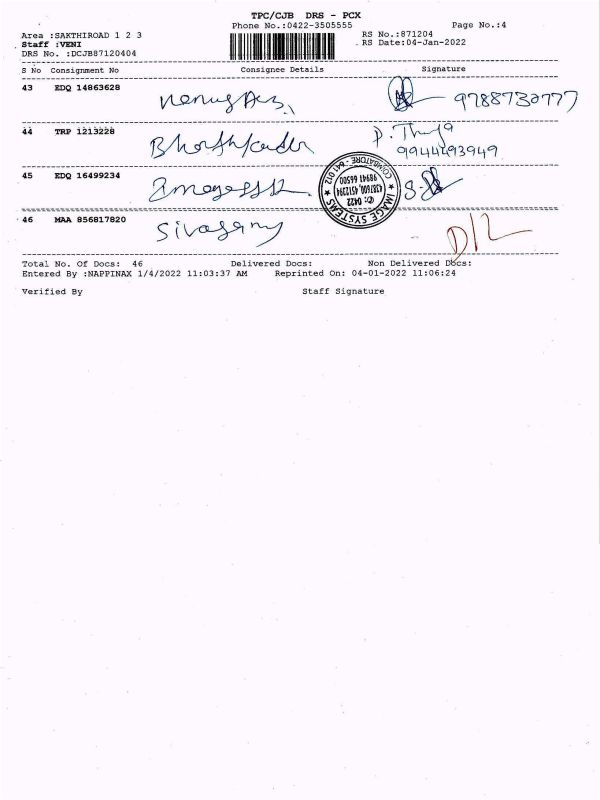 TPC/CJB DRS - PCX
Phone No.:0422-3505555 Page No.:4
Area :SAKTHIROAD 1 2 3 RS No.:871204
Staff :VENI RS Date:04-Jan-2022
DRS No. :DCJB87120404
S No Consignment No Consignee Details Signature
43 EDQ 14863628 9788730777
44 TRP 1213228 P. Thuja
9944493949
45 EDQ 16499234
IMAGE SYSTEMS ★ COIMBATORE - 641 012 ★
✆: 0422
4381600, 4512394
98941 66500
46 MAA 856817820 Sivasamy D/L
Total No. Of Docs: 46 Delivered Docs: Non Delivered Docs:
Entered By :NAPPINAX 1/4/2022 11:03:37 AM Reprinted On: 04-01-2022 11:06:24
Verified By Staff Signature